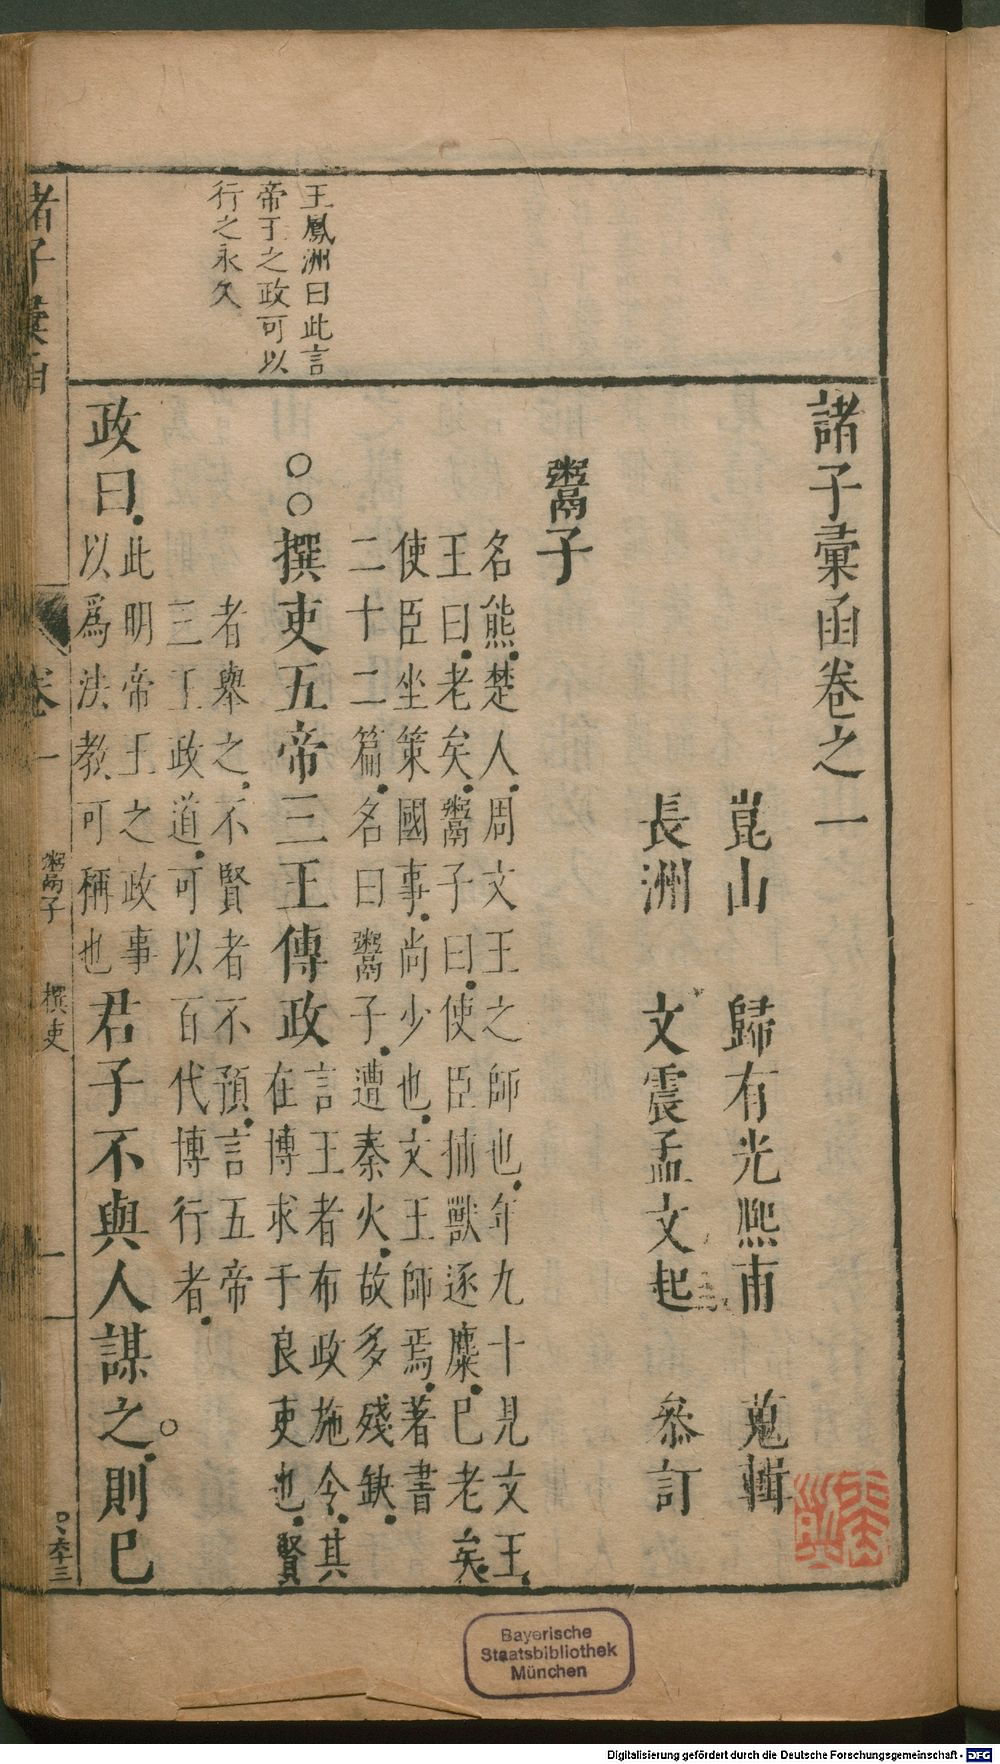 諸子彙函卷之一
崑山 歸有光熈甫 蒐輯
長洲 文震孟文起 叅訂
鬻子
名熊楚人周文王之師也年九十見文王
王曰老矣鬻子曰使臣捕獸逐麋已老矣
使臣坐策國事尚少也文王師焉著書
二十二篇名曰鬻子遭秦火故多殘缺
○○撰吏五帝三王傳政
言王者布政施令其
在博求于良吏也賢
者舉之不賢者不預言五帝
三王政道可以百代博行者
政曰
此明帝王之政事
以爲法教可稱也
君子不與人謀之則已
王鳳洲曰此言
帝王之政可以
行之永久
諸子彙函
卷一
鬻子
撰吏
一
六十三
Bayerische
Staatsbibliothek
München
Digitalisierung gefördert durch die Deutsche Forschungsgemeinschaft - DFG